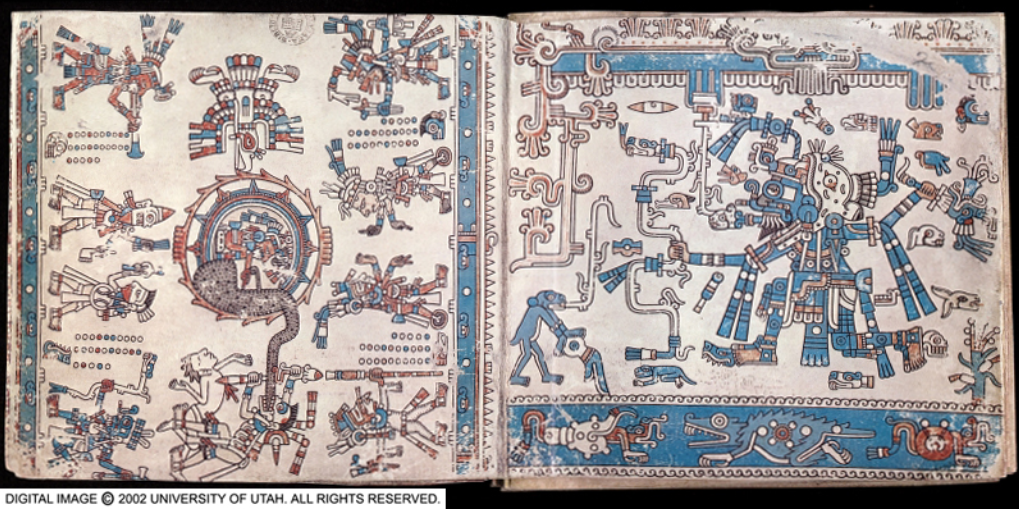 DIGITAL IMAGE © 2002 UNIVERSITY OF UTAH. ALL RIGHTS RESERVED.